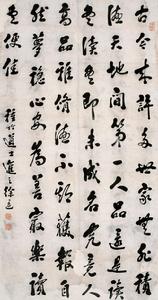 古今來許多世家無非積
德天地間第一人品還是讀
書讀書即未成名究竟人
高品雅脩德不期獲報自
然夢穩心安為善最樂讀
書便佳